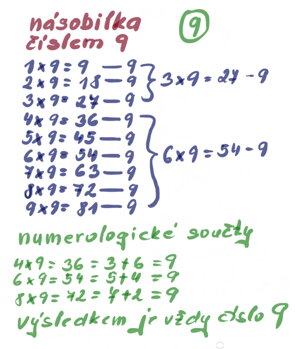 násobilka
číslem 9
9
1×9 = 9 — 9
2×9 = 18 — 9
3×9 = 27 — 9
3×9 = 27 – 9
4×9 = 36 — 9
5×9 = 45 — 9
6×9 = 54 — 9
7×9 = 63 — 9
8×9 = 72 — 9
9×9 = 81 — 9
6×9 = 54 – 9
numerologické součty
4×9 = 36 = 3+6 = 9
6×9 = 54 = 5+4 = 9
8×9 = 72 = 7+2 = 9
výsledkem je vždy číslo 9